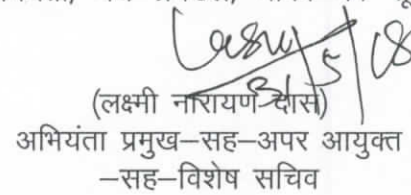 31/5/18
(लक्ष्मी नारायण दास)
अभियंता प्रमुख–सह–अपर आयुक्त
–सह–विशेष सचिव